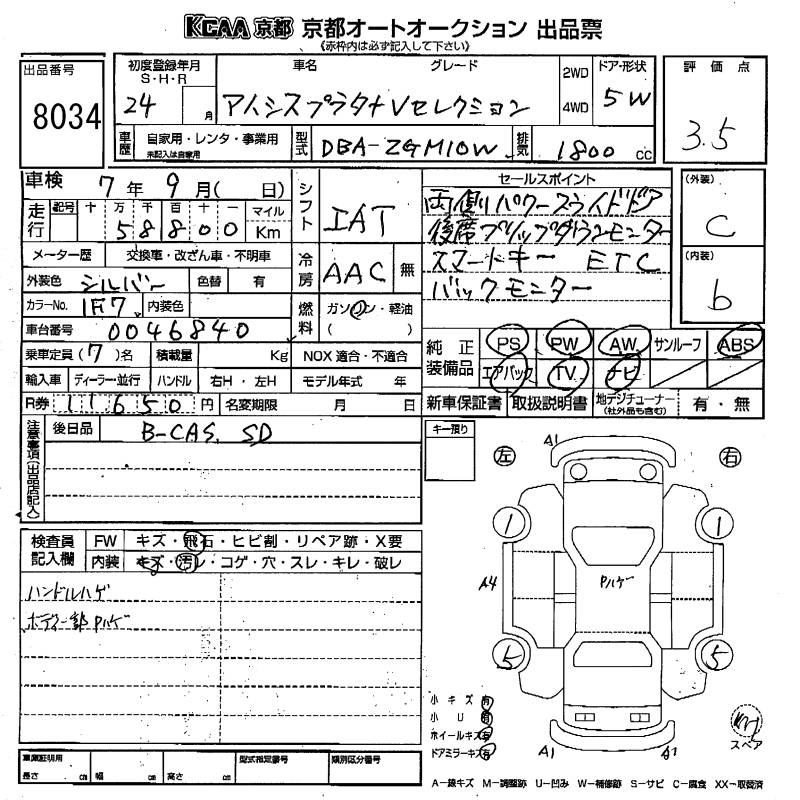 KCAA 京都 京都オートオークション 出品票
《赤枠内は必ず記入して下さい》
出品番号
8034
初度登録年月
S・H・R
24
月
車名
グレード
アイシスプラタナVセレクション
2WD
4WD
ドア・形状
5W
評価点
3.5
車歴
自家用・レンタ・事業用
未記入は自家用
型式
DBA-ZGM10W
排気
1800 CC
車検 7年 9月( 日)
走行
記号 十 万 千 百 十 一
58800
マイル
Km
シフト
IAT
セールスポイント
両側パワースライドドア
後席フリップダウンモニター
スマートキー ETC
バックモニター
(外装)
C
(内装)
b
メーター歴
交換車・改ざん車・不明車
冷房
AAC
無
外装色
シルバー
色替
有
カラーNo.
1F7
内装色
燃料
ガソリン・軽油
( )
車台番号
0046840
乗車定員(7)名
積載量
Kg
NOX 適合・不適合
純正装備品
PS PW AW サンルーフ ABS
エアバック TV ナビ
輸入車
ディーラー・並行
ハンドル
右H・左H
モデル年式 年
R券 11650円
名変期限
月 日
新車保証書
取扱説明書
地デジチューナー
(社外品も含む)
有・無
注意事項(出品店記入)
後日品
B-CAS, SD
キー預り
A1
左
右
検査員記入欄
FW
キズ・飛石・ヒビ割・リペア跡・X要
内装
キズ・汚レ・コゲ・穴・スレ・キレ・破レ
ハンドルハゲ
ボディ一部Pハゲ
1
1
A4
Pハゲ
5
5
小キズ有
小U有
ホイールキズ有
ドアミラーキズ有
A1
A1
スペア
車庫証明用
長さ cm
幅 cm
高さ cm
型式指定番号
類別区分番号
A-線キズ M-調整跡 U-凹み W-補修跡 S-サビ C-腐食 XX-取替済